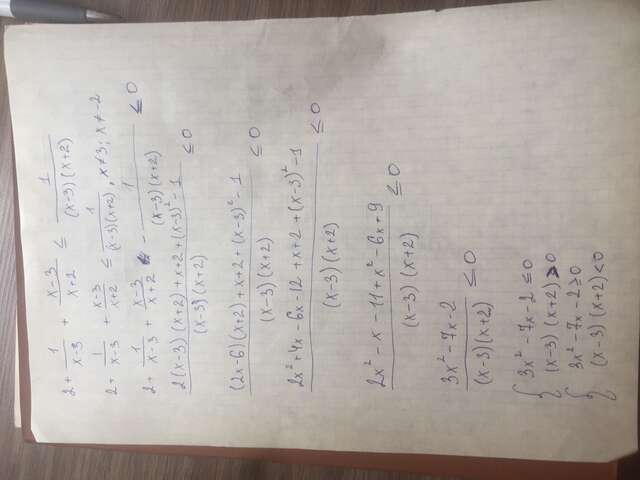 2 + 1/(x-3) + (x-3)/(x+2) ≤ 1/((x-3)(x+2))
2 + 1/(x-3) + (x-3)/(x+2) ≤ 1/((x-3)(x+2)), x≠3; x≠-2
2 + 1/(x-3) + (x-3)/(x+2) - 1/((x-3)(x+2)) ≤ 0
(2(x-3)(x+2) + x+2 + (x-3)² - 1)/((x-3)(x+2)) ≤ 0
((2x-6)(x+2) + x+2 + (x-3)² - 1)/((x-3)(x+2)) ≤ 0
(2x² + 4x - 6x - 12 + x + 2 + (x-3)² - 1)/((x-3)(x+2)) ≤ 0
(2x² - x - 11 + x² - 6x + 9)/((x-3)(x+2)) ≤ 0
(3x² - 7x - 2)/((x-3)(x+2)) ≤ 0
{ 3x² - 7x - 2 ≤ 0
(x-3)(x+2) > 0
{ 3x² - 7x - 2 ≥ 0
(x-3)(x+2) < 0